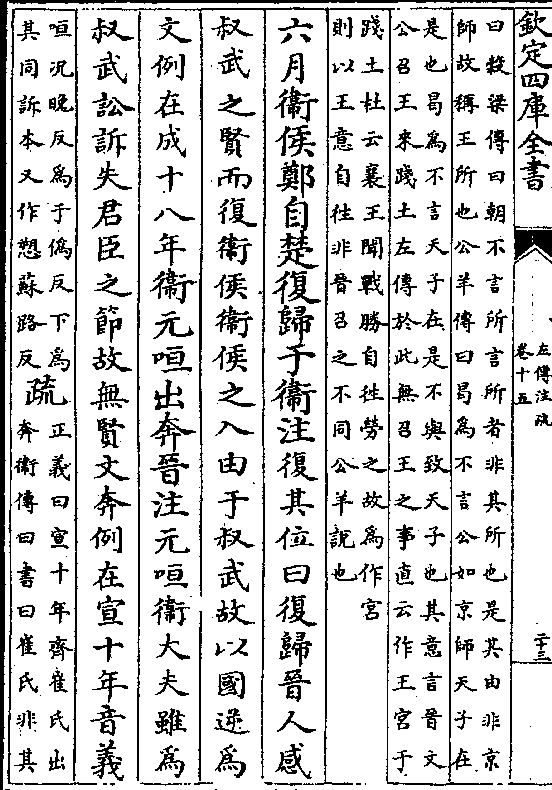 欽定四庫全書
左傳注疏
卷十五
二十三
曰穀梁傳曰朝不言所言所者非其所也是其由非京
師故稱王所也公羊傳曰曷為不言公如京師天子在
是也曷為不言天子在是不與致天子也其意言晉文
公召王來踐土左傳於此無召王之事直云作王宮于
踐土杜云襄王聞戰勝自徃勞之故為作宮
則以王意自徃非晉召之不同公羊說也
六月衞侯鄭自楚復歸于衞注復其位曰復歸晉人感
叔武之賢而復衞侯衞侯之入由于叔武故以國逆為
文例在成十八年衞元咺出奔晉注元咺衞大夫雖為
叔武訟訴失君臣之節故無賢文奔例在宣十年音義
咺况晚反為于偽反下為
其同訴本又作愬蘇路反
疏
正義曰宣十年齊崔氏出
奔衞傳曰書曰崔氏非其